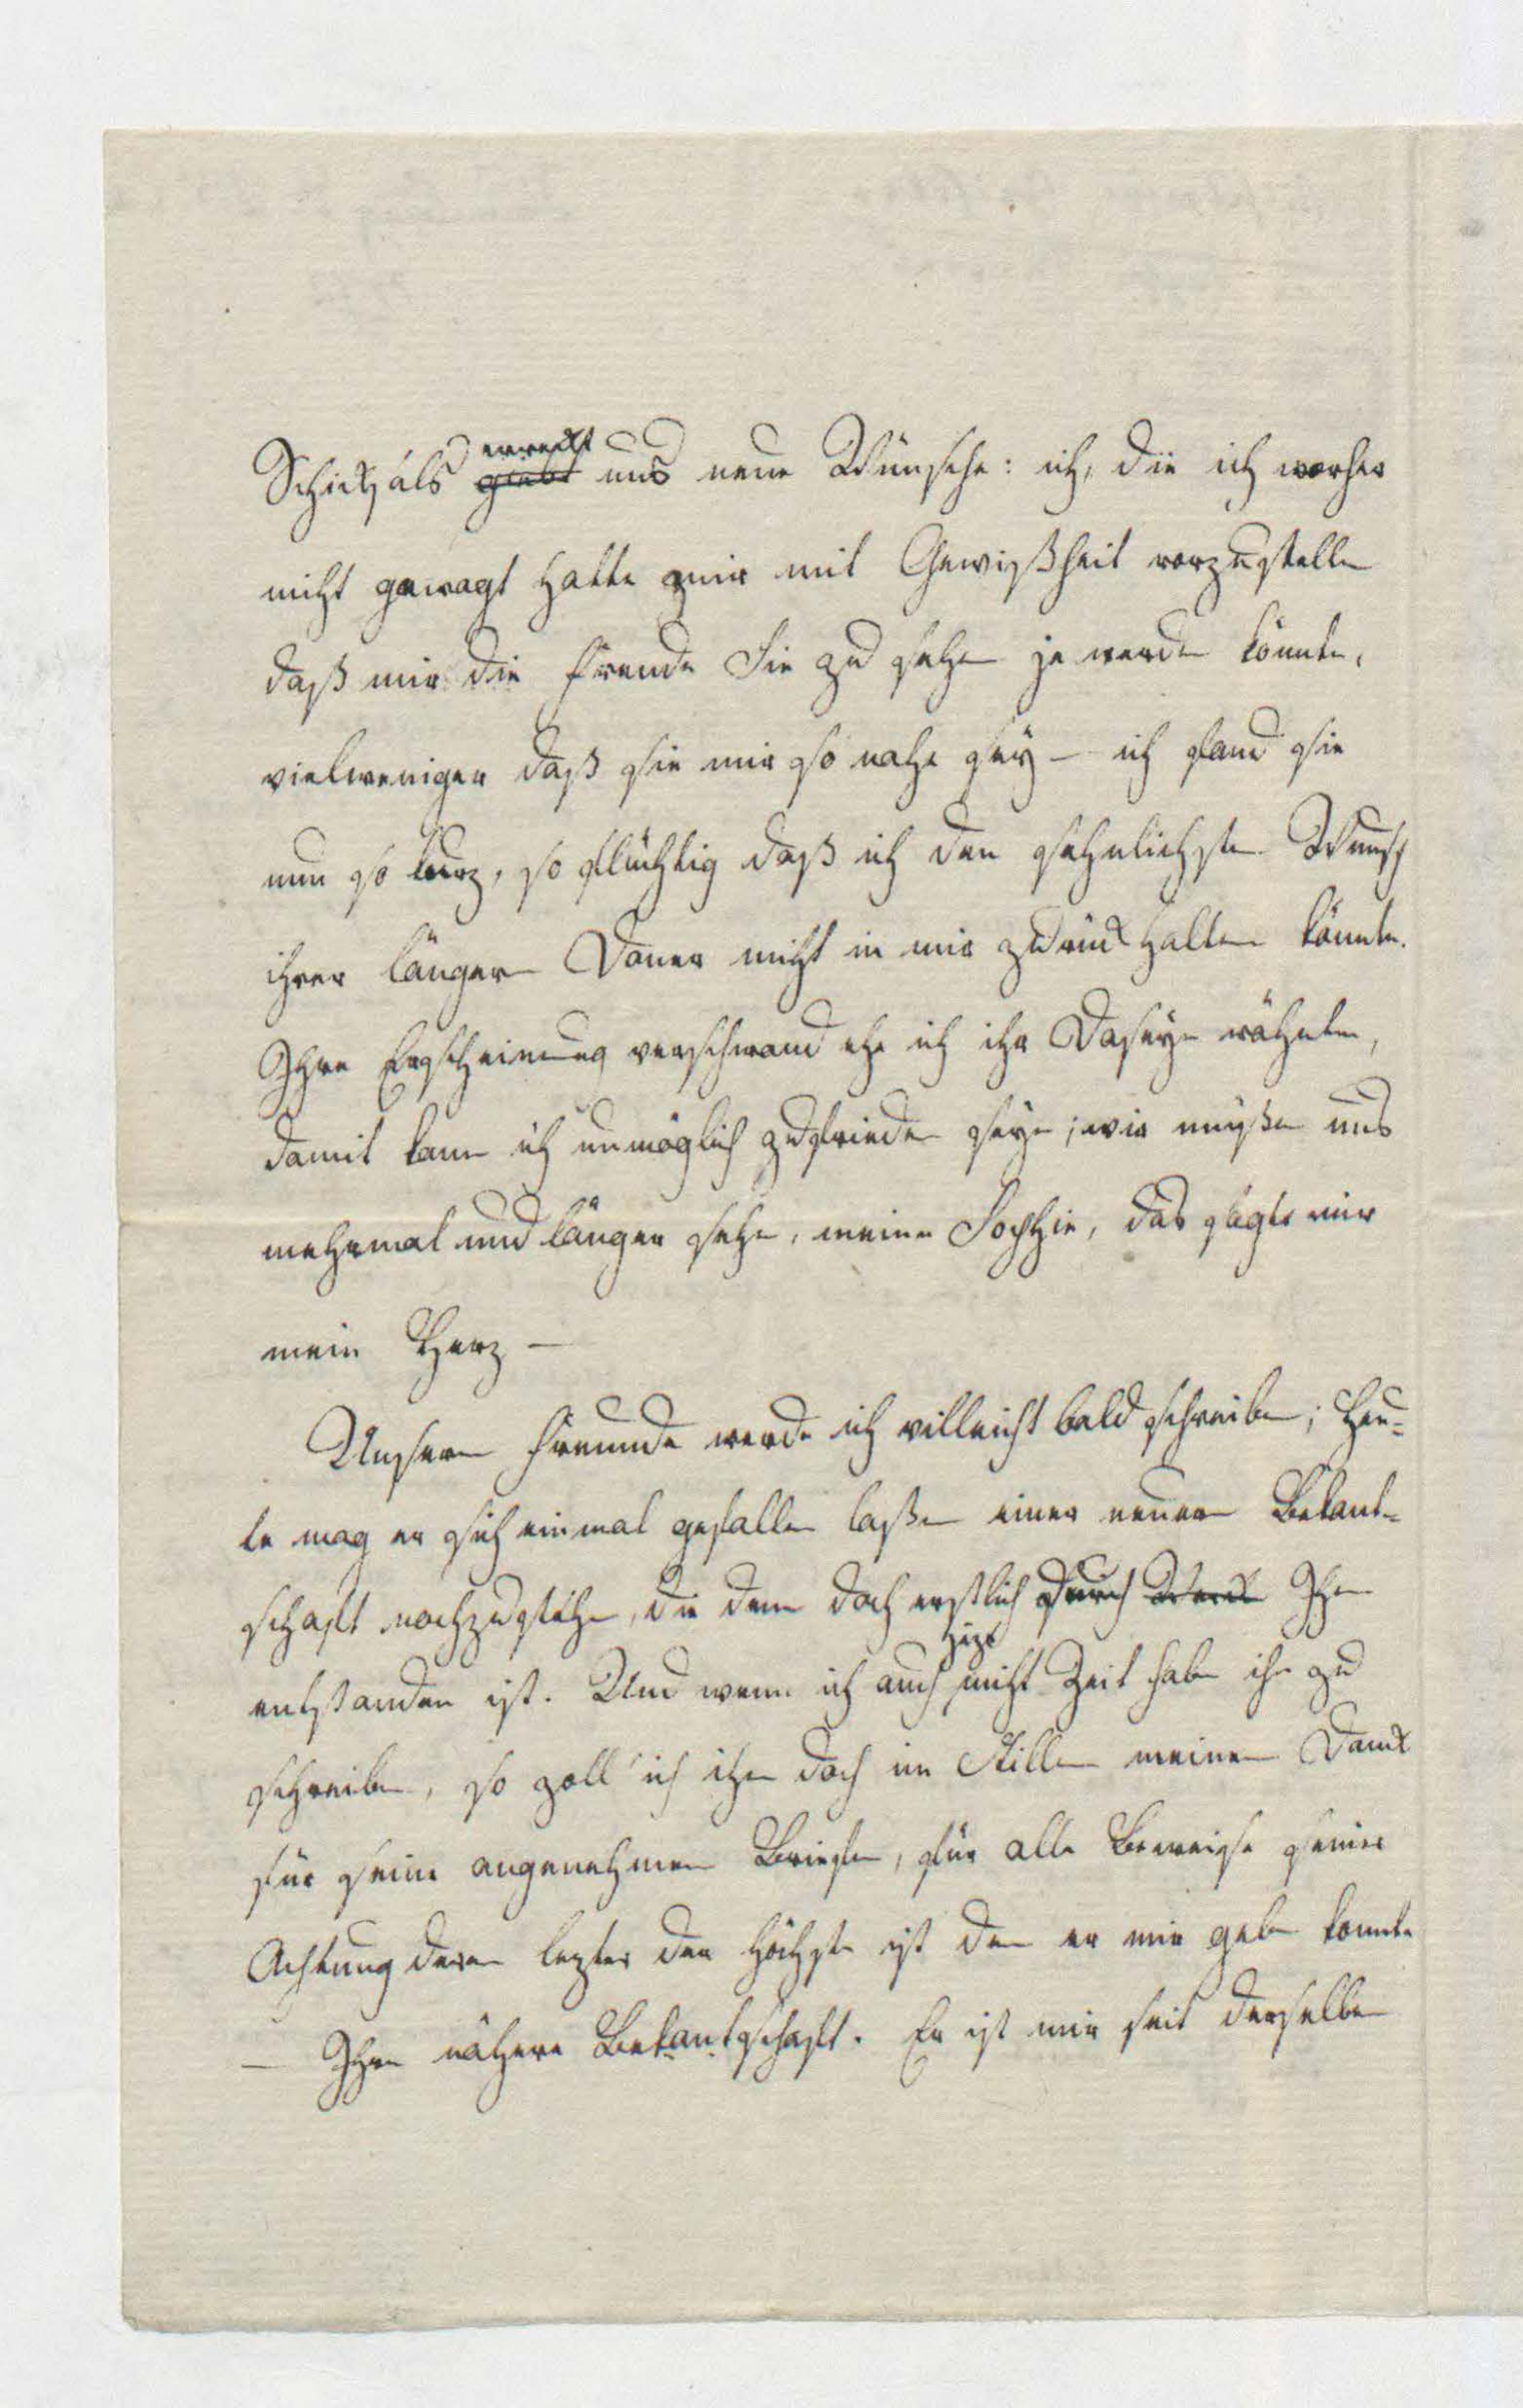 Schicksals erweckt uns neue Wünsche: ich, die ich vorher
nicht gewagt hatte mir mit Gewißheit vorzustellen
daß mir die Freude Sie zu sehen je werden könnte,
vielweniger daß sie mir so nahe sey – ich fand sie
nun so kurz, so flüchtig daß ich den sehnlichsten Wunsch
ihrer längern Dauer nicht in mir zurück halten könnte.
Ihre Erscheinung verschwand ehe ich ihr Daseyn wähnte,
damit kann ich unmöglich zufrieden seyn; wir müßen uns
mehrmal und länger sehen, meine Sophie, das sagte mir
mein Herz –
Unserm Freunde werde ich villeicht bald schreiben; heu-
te mag er sich einmal gefallen laßen einer neuern Bekant-
schaft nachzustehen, die denn doch erstlich durch Ihn
entstanden ist. Und wenn ich auch jezt nicht Zeit habe ihn zu
schreiben, so zoll' ich ihm doch im Stillen meinen Dank
für seine angenehmen Briefe, für alle Beweise seiner
Achtung deren lezter der höchste ist den er mir geben konnte
– Ihre nähere Bekantschaft. Er ist mir seit derselben